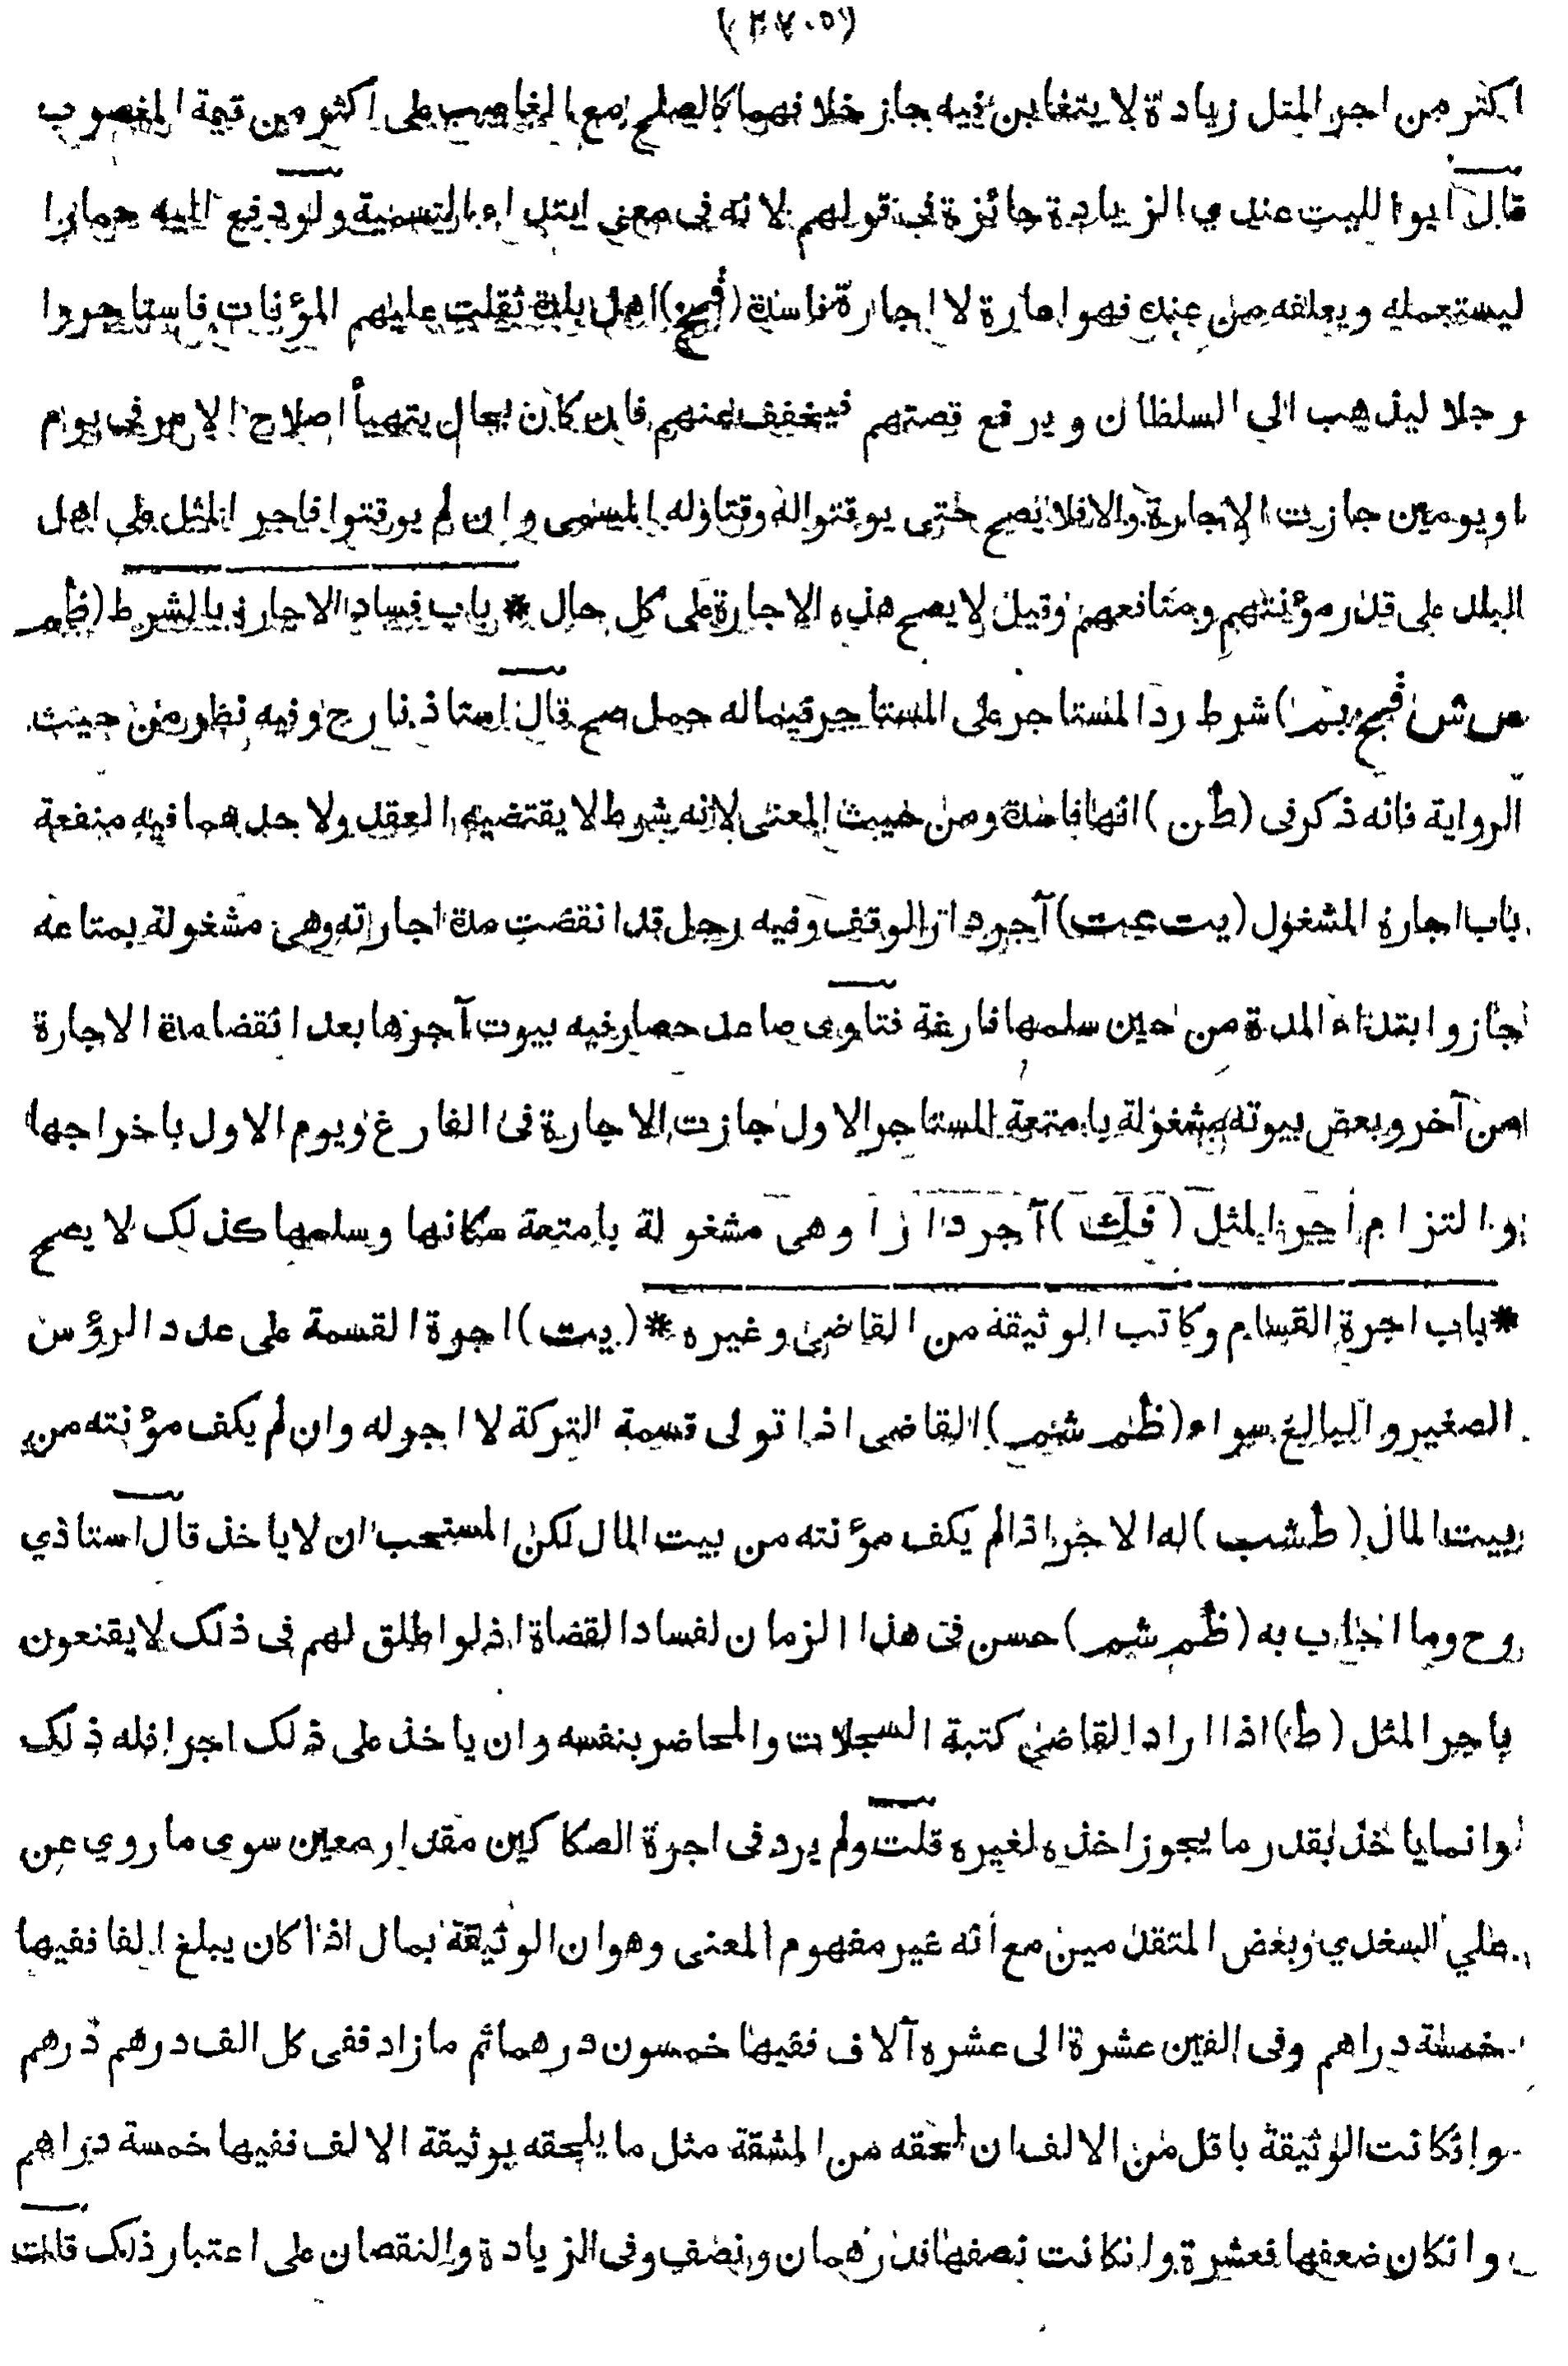 اكثر من اجر المثل زيادة لا يتغابن فيه جاز خلافهما كالصلح مع الغاصب على اكثر من قيمة المغصوب
قال ابوا لليث عندي الزيادة جائزة في قولهم لا نه في معنى ابتداء التسمية ولو دفع اليه حمارا
ليستعمله ويعلفه من عنده فهو اعارة لا اجارة فاسدة (فج) اهل بلدة ثقلت عليهم المؤنات فاستاجروا
رجلا ليذهب الى السلطان ويرفع قصتهم فيخفف عنهم فان كان بحال يتهيأ اصلاح الامر في يوم
او يومين جازت الاجارة والا فلا يصح حتى يوقتوا له وقتا وله المسمى وان لم يوقتوا فاجر المثل على اهل
البلد على قدر مؤنتهم ومنافعهم وقيل لا يصح هذه الاجارة على كل حال * باب فساد الاجارة بالشرط (ظم
قبح بم) شرط رد المستاجر على المستاجر فيما له حمل صح قال استاذنا رح وفيه نظر من حيث
الرواية فانه ذكر في (طن) انها فاسدة ومن حيث المعنى لانه شرط لا يقتضيه العقد ولاحدهما فيه منفعة
باب اجارة المشغول (يت عت) آجر دار الوقف وفيه رجل قد انقضت مدة اجارته وهي مشغولة بمتاعه
جاز وابتداء المدة من حين سلمها فارغة فتاوى صاعد حصار فيه بيوت آجرها بعد انقضا مدة الاجارة
من آخر وبعض بيوته مشغولة بامتعة المستاجر الاول جازت الاجارة في الفارغ ويوم الاول باخراجها
او التزام اجر المثل (فك) آجر دارا وهي مشغولة بامتعة مكانها وسلمها كذلك لا يصح
* باب اجرة القسام وكاتب الوثيقة من القاضي وغيره * (يت) اجرة القسمة على عدد الرؤس
الصغير والبالغ سواء (ظم شم) القاضى اذا تولى قسمة التركة لا اجر له وان لم يكف مؤنته من
بيت المال (طشب) له الاجر اذا لم يكف مؤنته من بيت المال لكن المستحب ان لا ياخذ قال استاذي
رح وما اجاب به (ظم شم) حسن في هذا الزمان لفساد القضاة اذ لو اطلق لهم في ذلك لا يقنعون
باجر المثل (ط) اذا اراد القاضي كتبة السجلات والمحاضر بنفسه وان ياخذ على ذلك اجرا فله ذلك
وانما ياخذ بقدر ما يجوز اخذه لغيره قلت ولم يرد في اجرة الصكاكين مقدار معين سوى ما روي عن
علي السغدي وبعض المتقدمين مع انه غير مفهوم المعنى وهو ان الوثيقة بمال اذا كان يبلغ الفا ففيها
خمسة دراهم وفى الفين عشرة الى عشره آلاف ففيها خمسون درهما ثم ما زاد ففى كل الف درهم درهم
وانكانت الوثيقة باقل من الالف ان لحقه من المشقة مثل ما يلحقه بوثيقة الالف ففيها خمسة دراهم
وانكان ضعفها فعشرة وانكانت نصفها فدرهمان ونصف وفى الزيادة والنقصان على اعتبار ذلك قلت